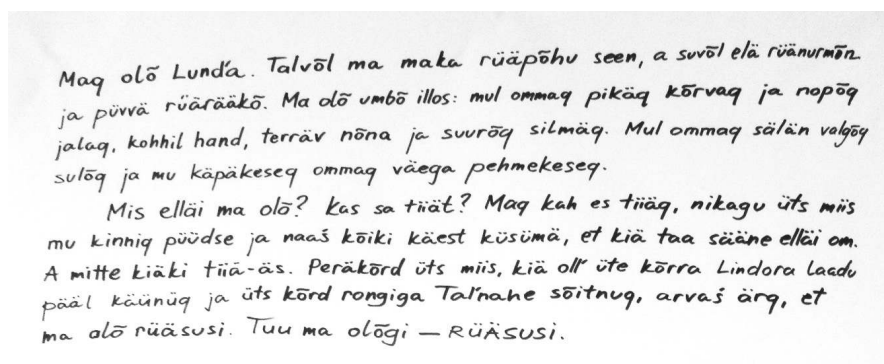 Maq olõ Lund'a. Talvõl ma maka rüäpõhu seen, a suvõl elä rüänurmõn
ja püvvä rüärääkõ. Ma olõ umbõ illos: mul ommaq pikäq kõrvaq ja nopõq
jalaq, kohhil hand, terräv nõna ja suurõq silmäq. Mul ommaq sälän valgõq
sulõq ja mu käpäkeseq ommaq väega pehmekeseq.
Mis elläi ma olõ? Kas sa tiiät? Maq kah es tiiäq, nikagu üts miis
mu kinniq püüdse ja naaś kõiki käest küsümä, et kiä taa sääne elläi om.
A mitte kiäki tiiä-äs. Peräkõrd üts miis, kiä oll' üte kõrra Lindora laadu
pääl käünüq ja üts kõrd rongiga Tal'nahe sõitnuq, arvaś ärq, et
ma olõ rüäsusi. Tuu ma olõgi – RÜÄSUSI.